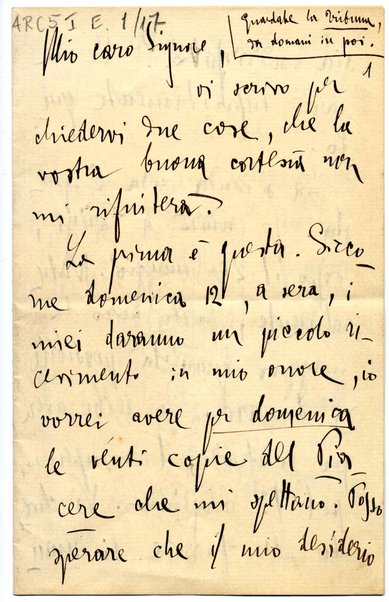 ARC 5 I E. 1/17
Guardate la Tribuna,
da domani in poi.
1
Mio caro Signore,
vi scrivo per
chiedervi due cose, che la
vostra buona cortesia non
mi rifiuterà.
La prima è questa. Sicco-
me domenica 12, a sera, i
miei daranno un piccolo ri-
cevimento in mio onore, io
vorrei avere per domenica
le venti copie del Pia
cere che mi spettano. Posso
sperare che il mio desiderio